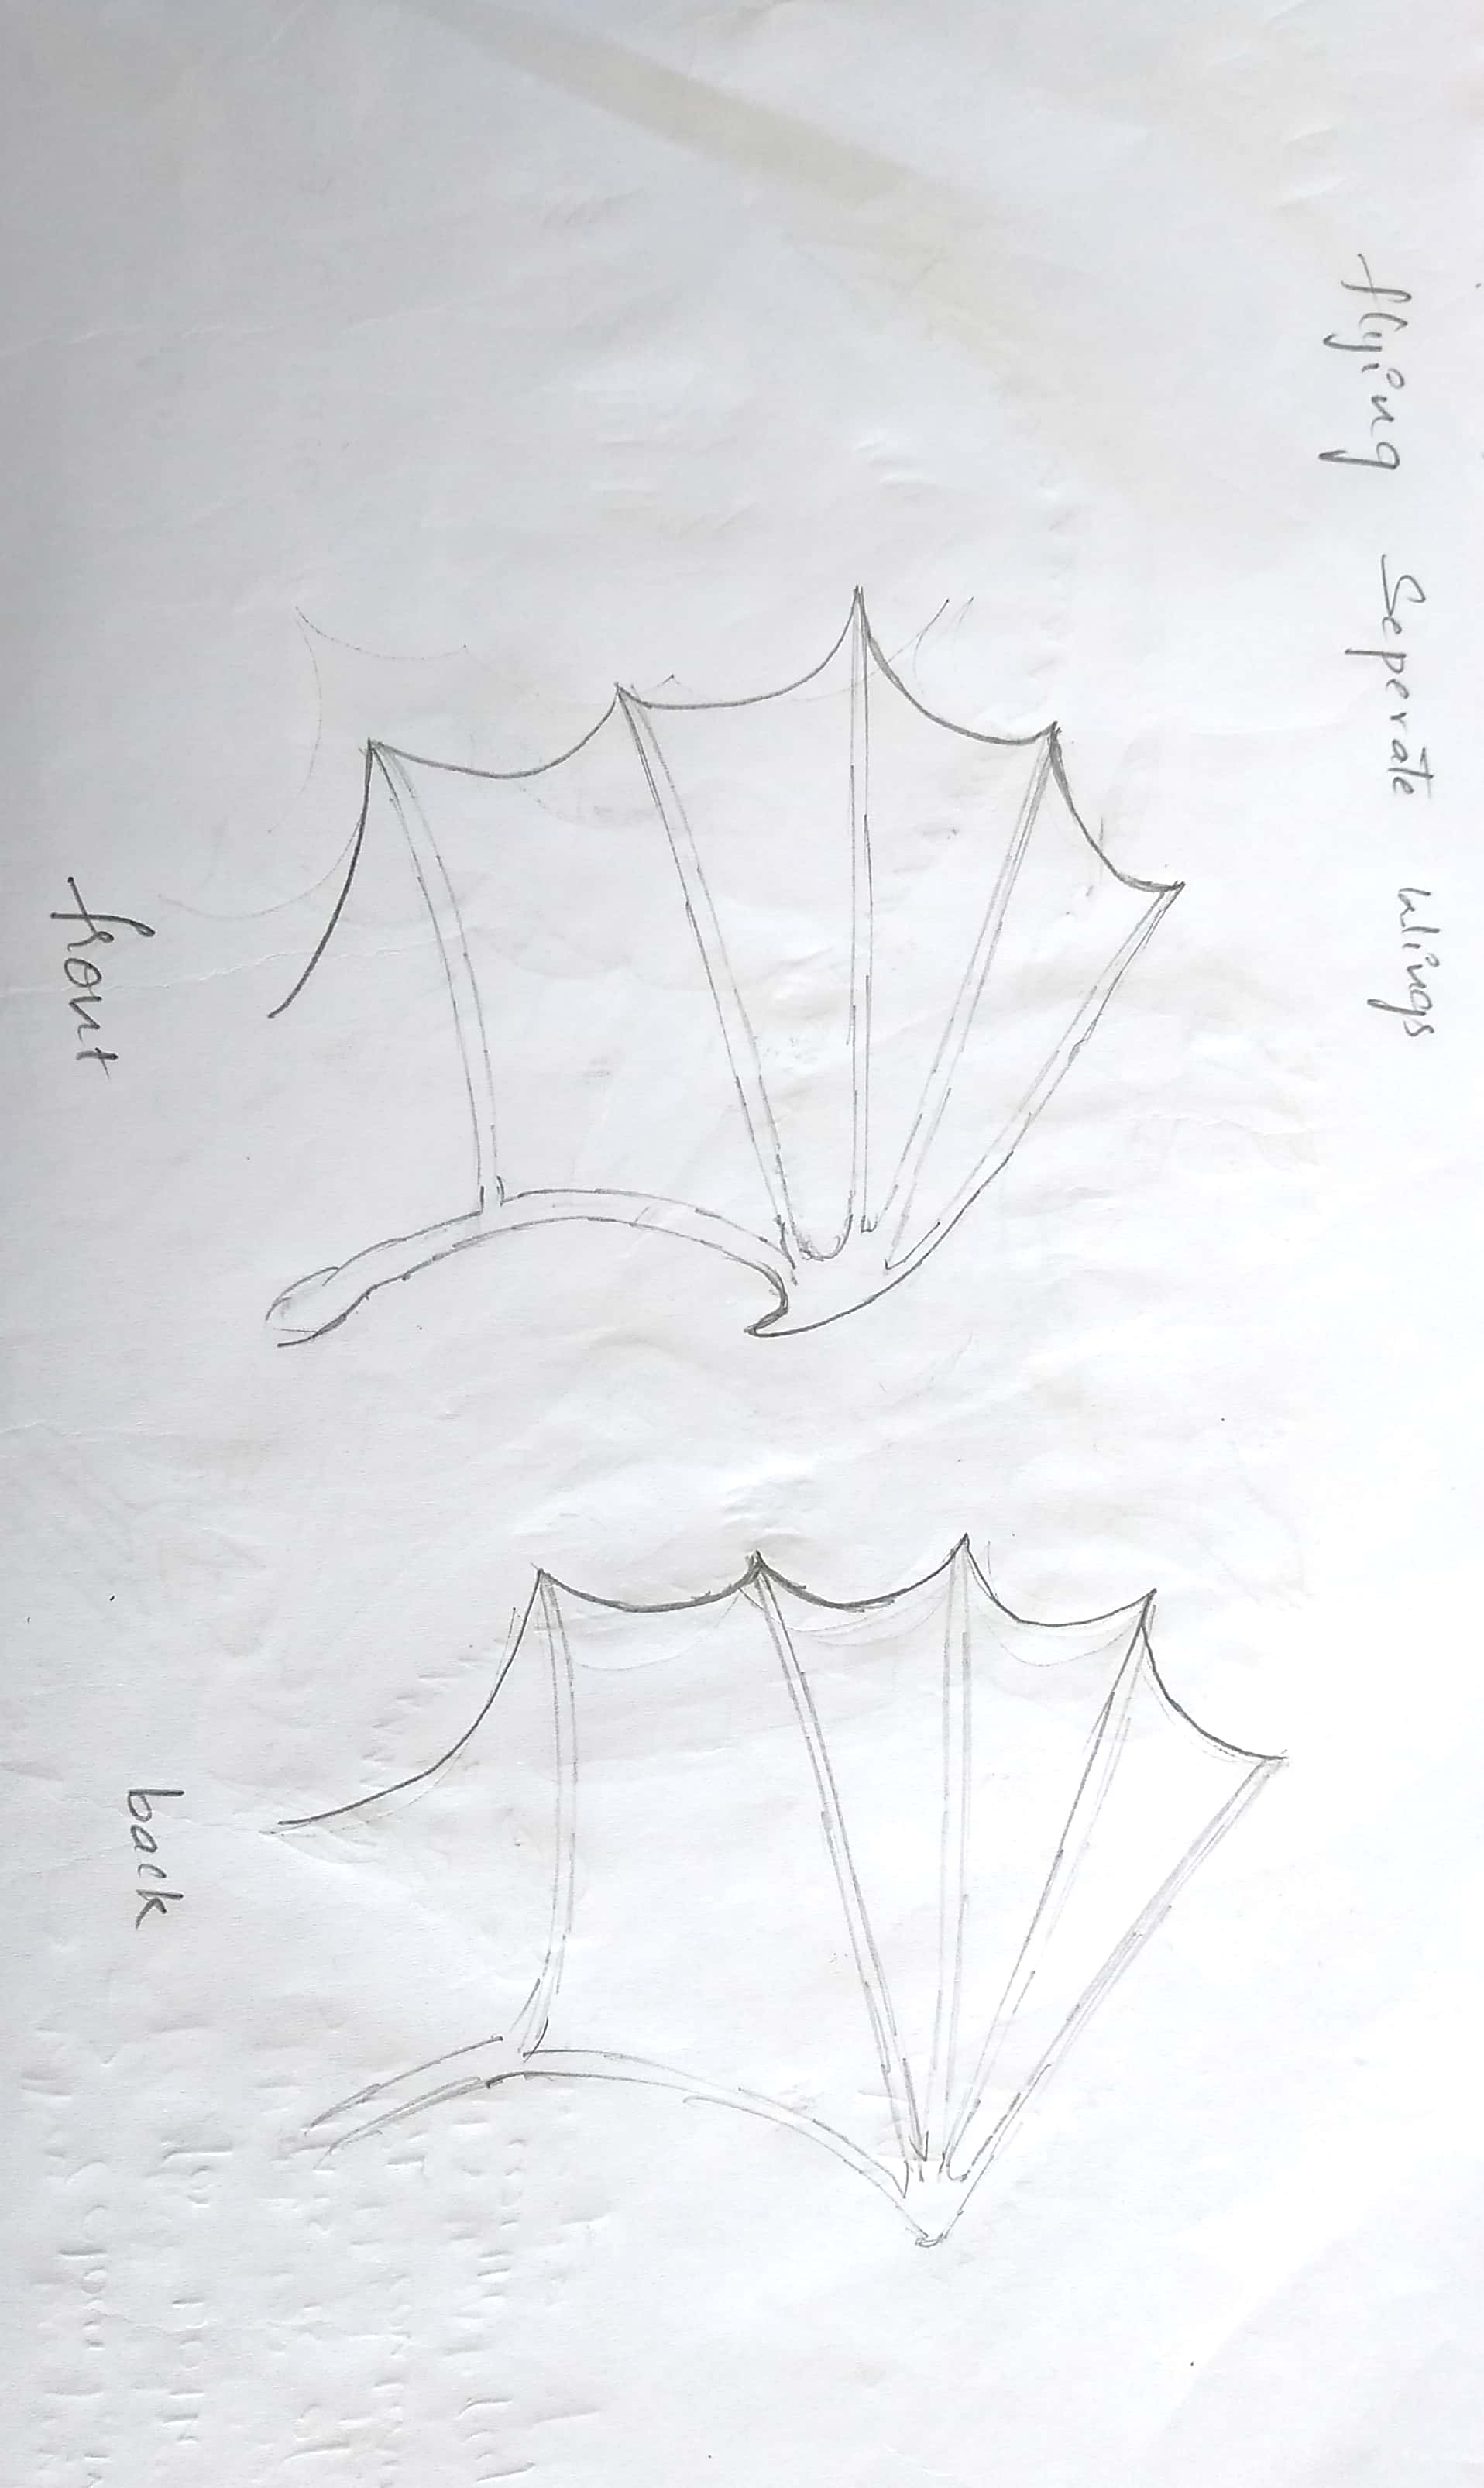 flying Seperate Wings
front
back